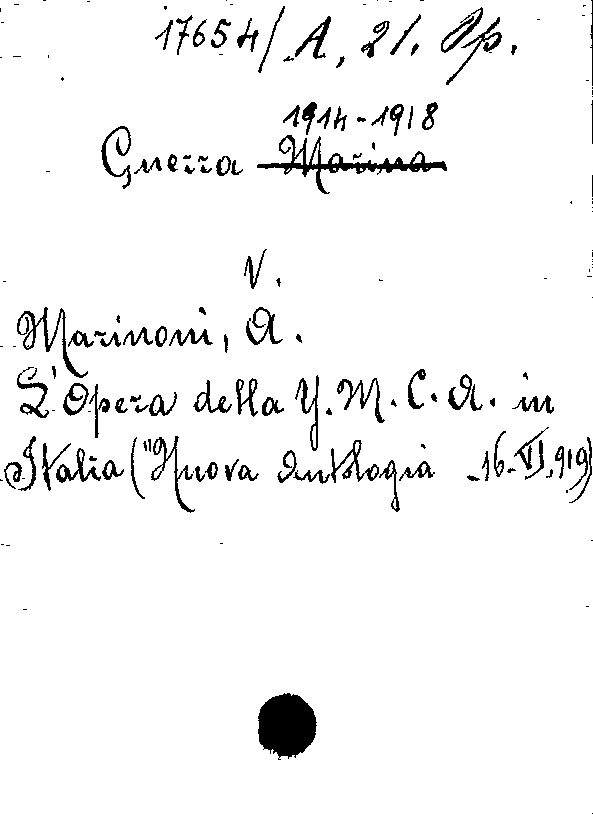 17654/A, 21. Op.
1914-1918
Guerra Marina
V.
Marinoni, A.
L'Opera della Y.M.C.A. in
Italia ("Nuova Antologia -16-VI.919)